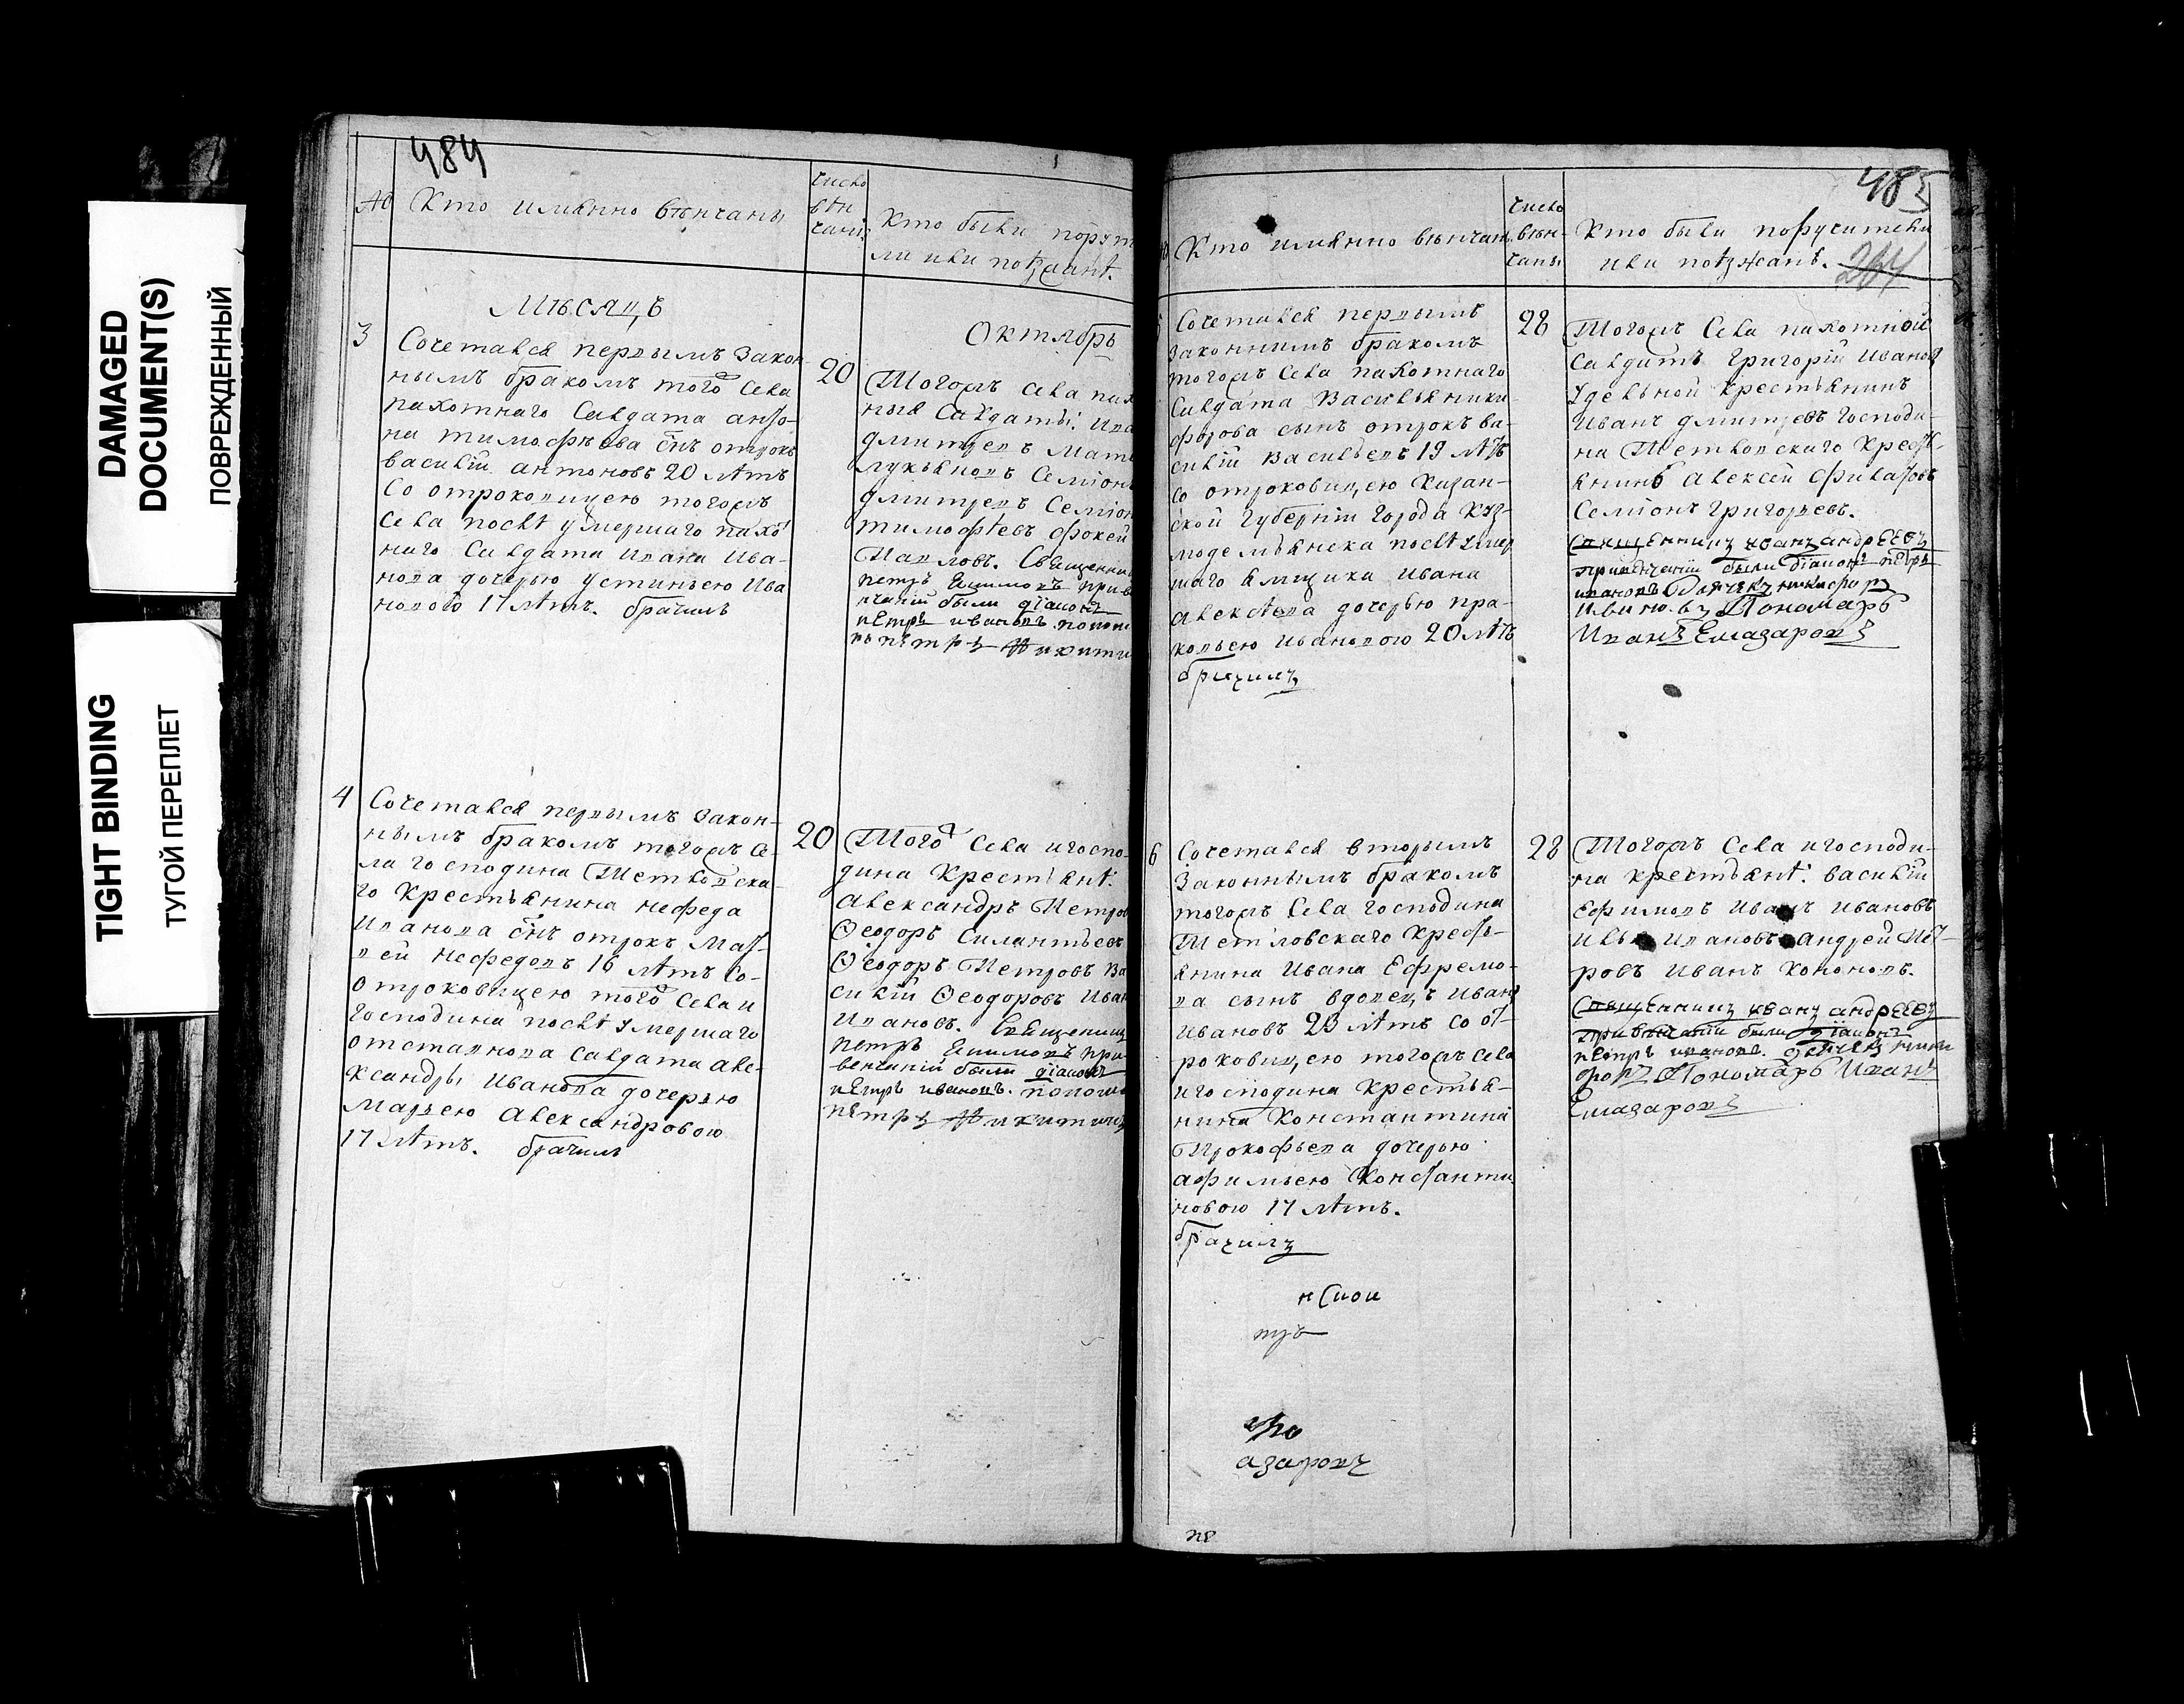 DAMAGED
DOCUMENT(S)
ПОВРЕЖДЕННЫЙ
TIGHT BINDING
ТУГОЙ ПЕРЕПЛЕТ
484
№
Кто имянно вѣнчаны
число
вѣн
чани
Кто были пору
ли или поѣзжанѣ.
Мѣсяцъ
Октябрь
3
Сочетался первымъ закон
нымъ бракомъ того села
пахотнаго Салдата анто-
на тимофѣева снъ отрокъ
василій антоновъ 20 лѣтъ
Со отроковицею тогожъ
села послѣ умершаго пахо
наго Салдата Ивана Ива-
нова дочерью устиньею Ива
новою 17 лѣтъ. брачилъ
20
Тогожъ села пах
ныя Салдаты: Ива
дмитревъ Матв
лукьяновъ Семіонъ
дмитревъ Семіон
тимофѣевъ фокей
Павловъ. Священни
петръ при
нчаніи были діаконъ
пѣтръ ивановъ. поном
рь пѣтръ Никити
4
Сочетался первымъ закон-
нымъ бракомъ тогожъ се-
ла господина Шетловска-
го Крестьянина нефеда
Иванова снъ отрокъ Мат-
вей Нефедовъ 16 лѣтъ со-
отроковицею того села и
господина послѣ умершаго
отставнова Салдата але-
ксандры Иванова дочерью
Марьею Александровою
17 лѣтъ. брачилъ
20
Того села и госпо-
дина крестьянѣ:
Александръ Петров
Ѳеодоръ Силантьевъ
Ѳеодоръ Петровъ Ва
силій Ѳеодоровъ Иван
Ивановъ. Священникъ
петръ при
венчаніи были діаконъ
пѣтръ ивановъ. поном
пѣтръ Никитинъ
485
264
Кто имянно вѣнчан
число
вѣн-
чаны
Кто были поручители
или поѣзжанѣ.
5
Сочетался первымъ
законнымъ бракомъ
тогожъ села пахотнаго
Салдата Василья ники-
форова сынъ отрокъ ва-
силій Васильевъ 19 лѣтъ
со отроковицею Казан-
ской губерніи города Куз-
модемьянска послѣ умер
шаго ямщика Ивана
алексѣева дочерью пра-
ковьею Ивановою 20 лѣтъ
брачилъ
28
Тогожъ села пахотной
салдатъ Григорій Ивановъ
Удельной крестьянинъ
Иванъ дмитревъ господи-
на Шетловскаго Кресть-
янинъ Алексей Филатовъ
Семіонъ Григорьевъ.
Священникъ иванъ андрѣевъ
при вѣнчаніи были діаконъ пѣтръ
ивановъ Дьячекъ никифоръ
Пономарь
Иванъ Елиазаровъ
6
Сочетался вторымъ
Законнымъ бракомъ
тогожъ Села господина
Шетловскаго Кресть-
янина Ивана Ефремо-
ва сынъ вдовецъ Иванъ
Ивановъ 23 лѣтъ со от-
роковицею тогожъ села
и господина крестья-
нина Константина
Прокофьева дочерью
афимьею Константи
новою 17 лѣтъ.
брачилъ
28
Тогожъ Села и господи-
на крестьянѣ: василій
Ефимовъ Иванъ Ивановъ
Илья Ивановъ Андрей Пет-
ровъ Иванъ Кононовъ.
Священникъ иванъ андрѣевъ
при вѣнчаніи были діаконъ
пѣтръ ивановъ. дьячекъ ники
форъ Пономарь Иванъ
Елиазаровъ
азаровъ